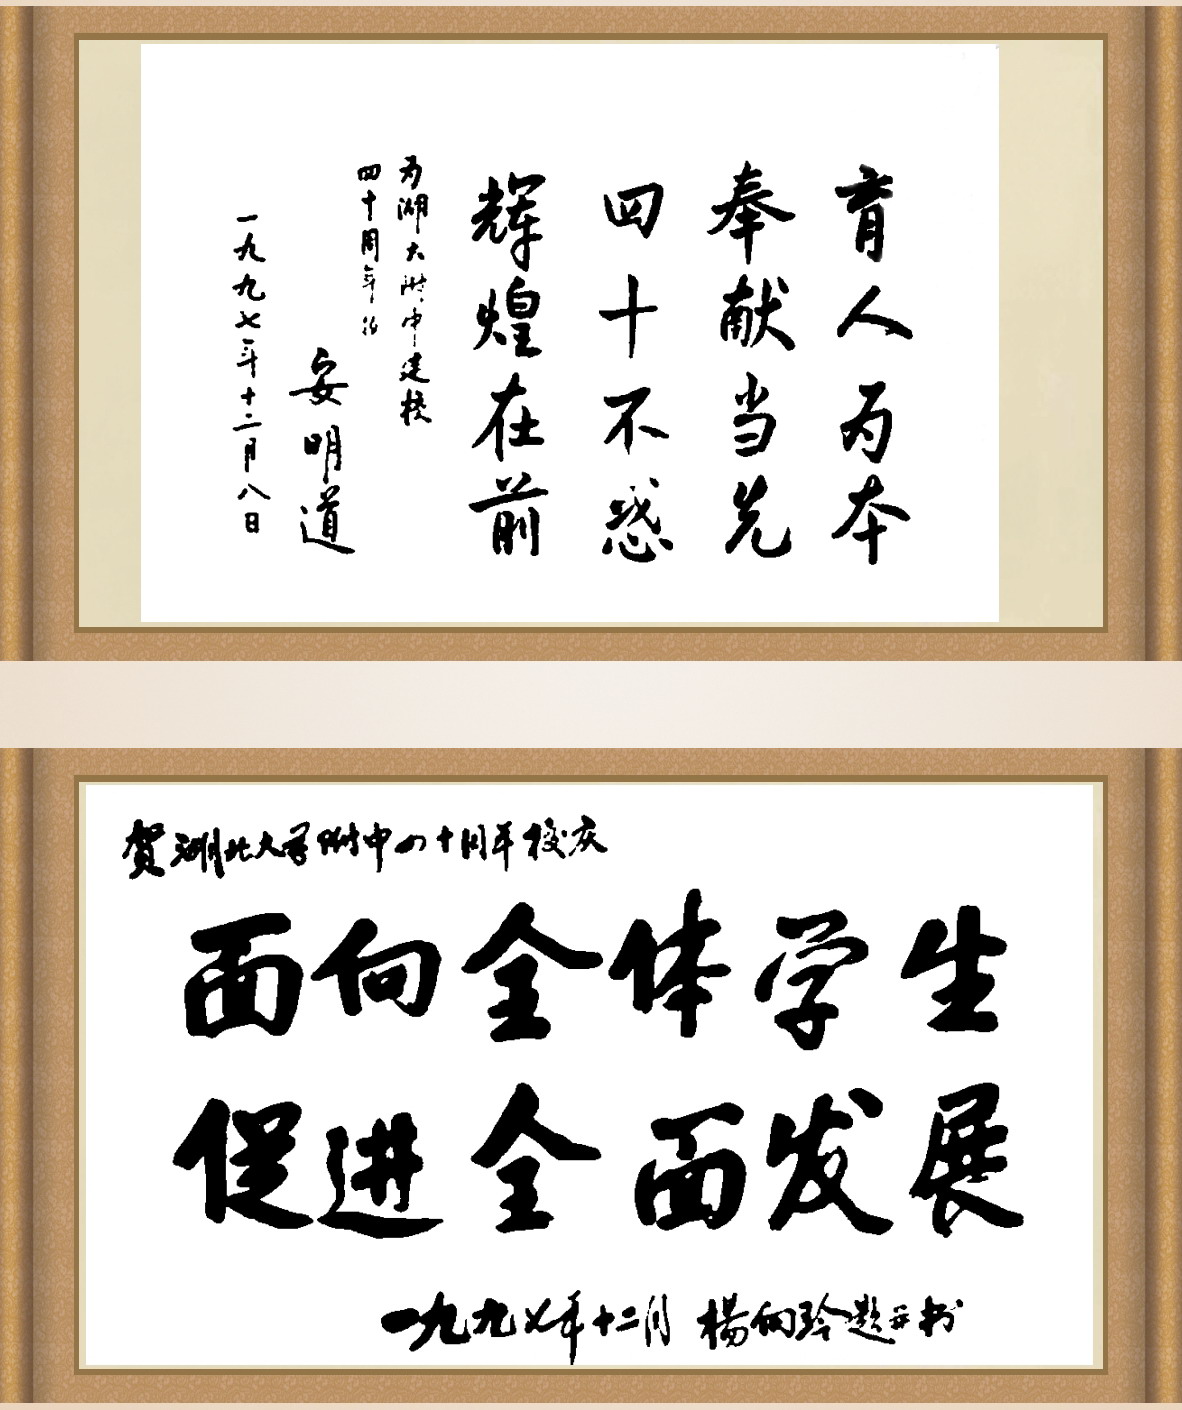 育人为本
奉献当先
四十不惑
辉煌在前
为湖大附中建校
四十周年
安明道
一九九七年十二月八日
贺湖北大学附中四十周年校庆
面向全体学生
促进全面发展
一九九七年十二月 杨向玲题并书